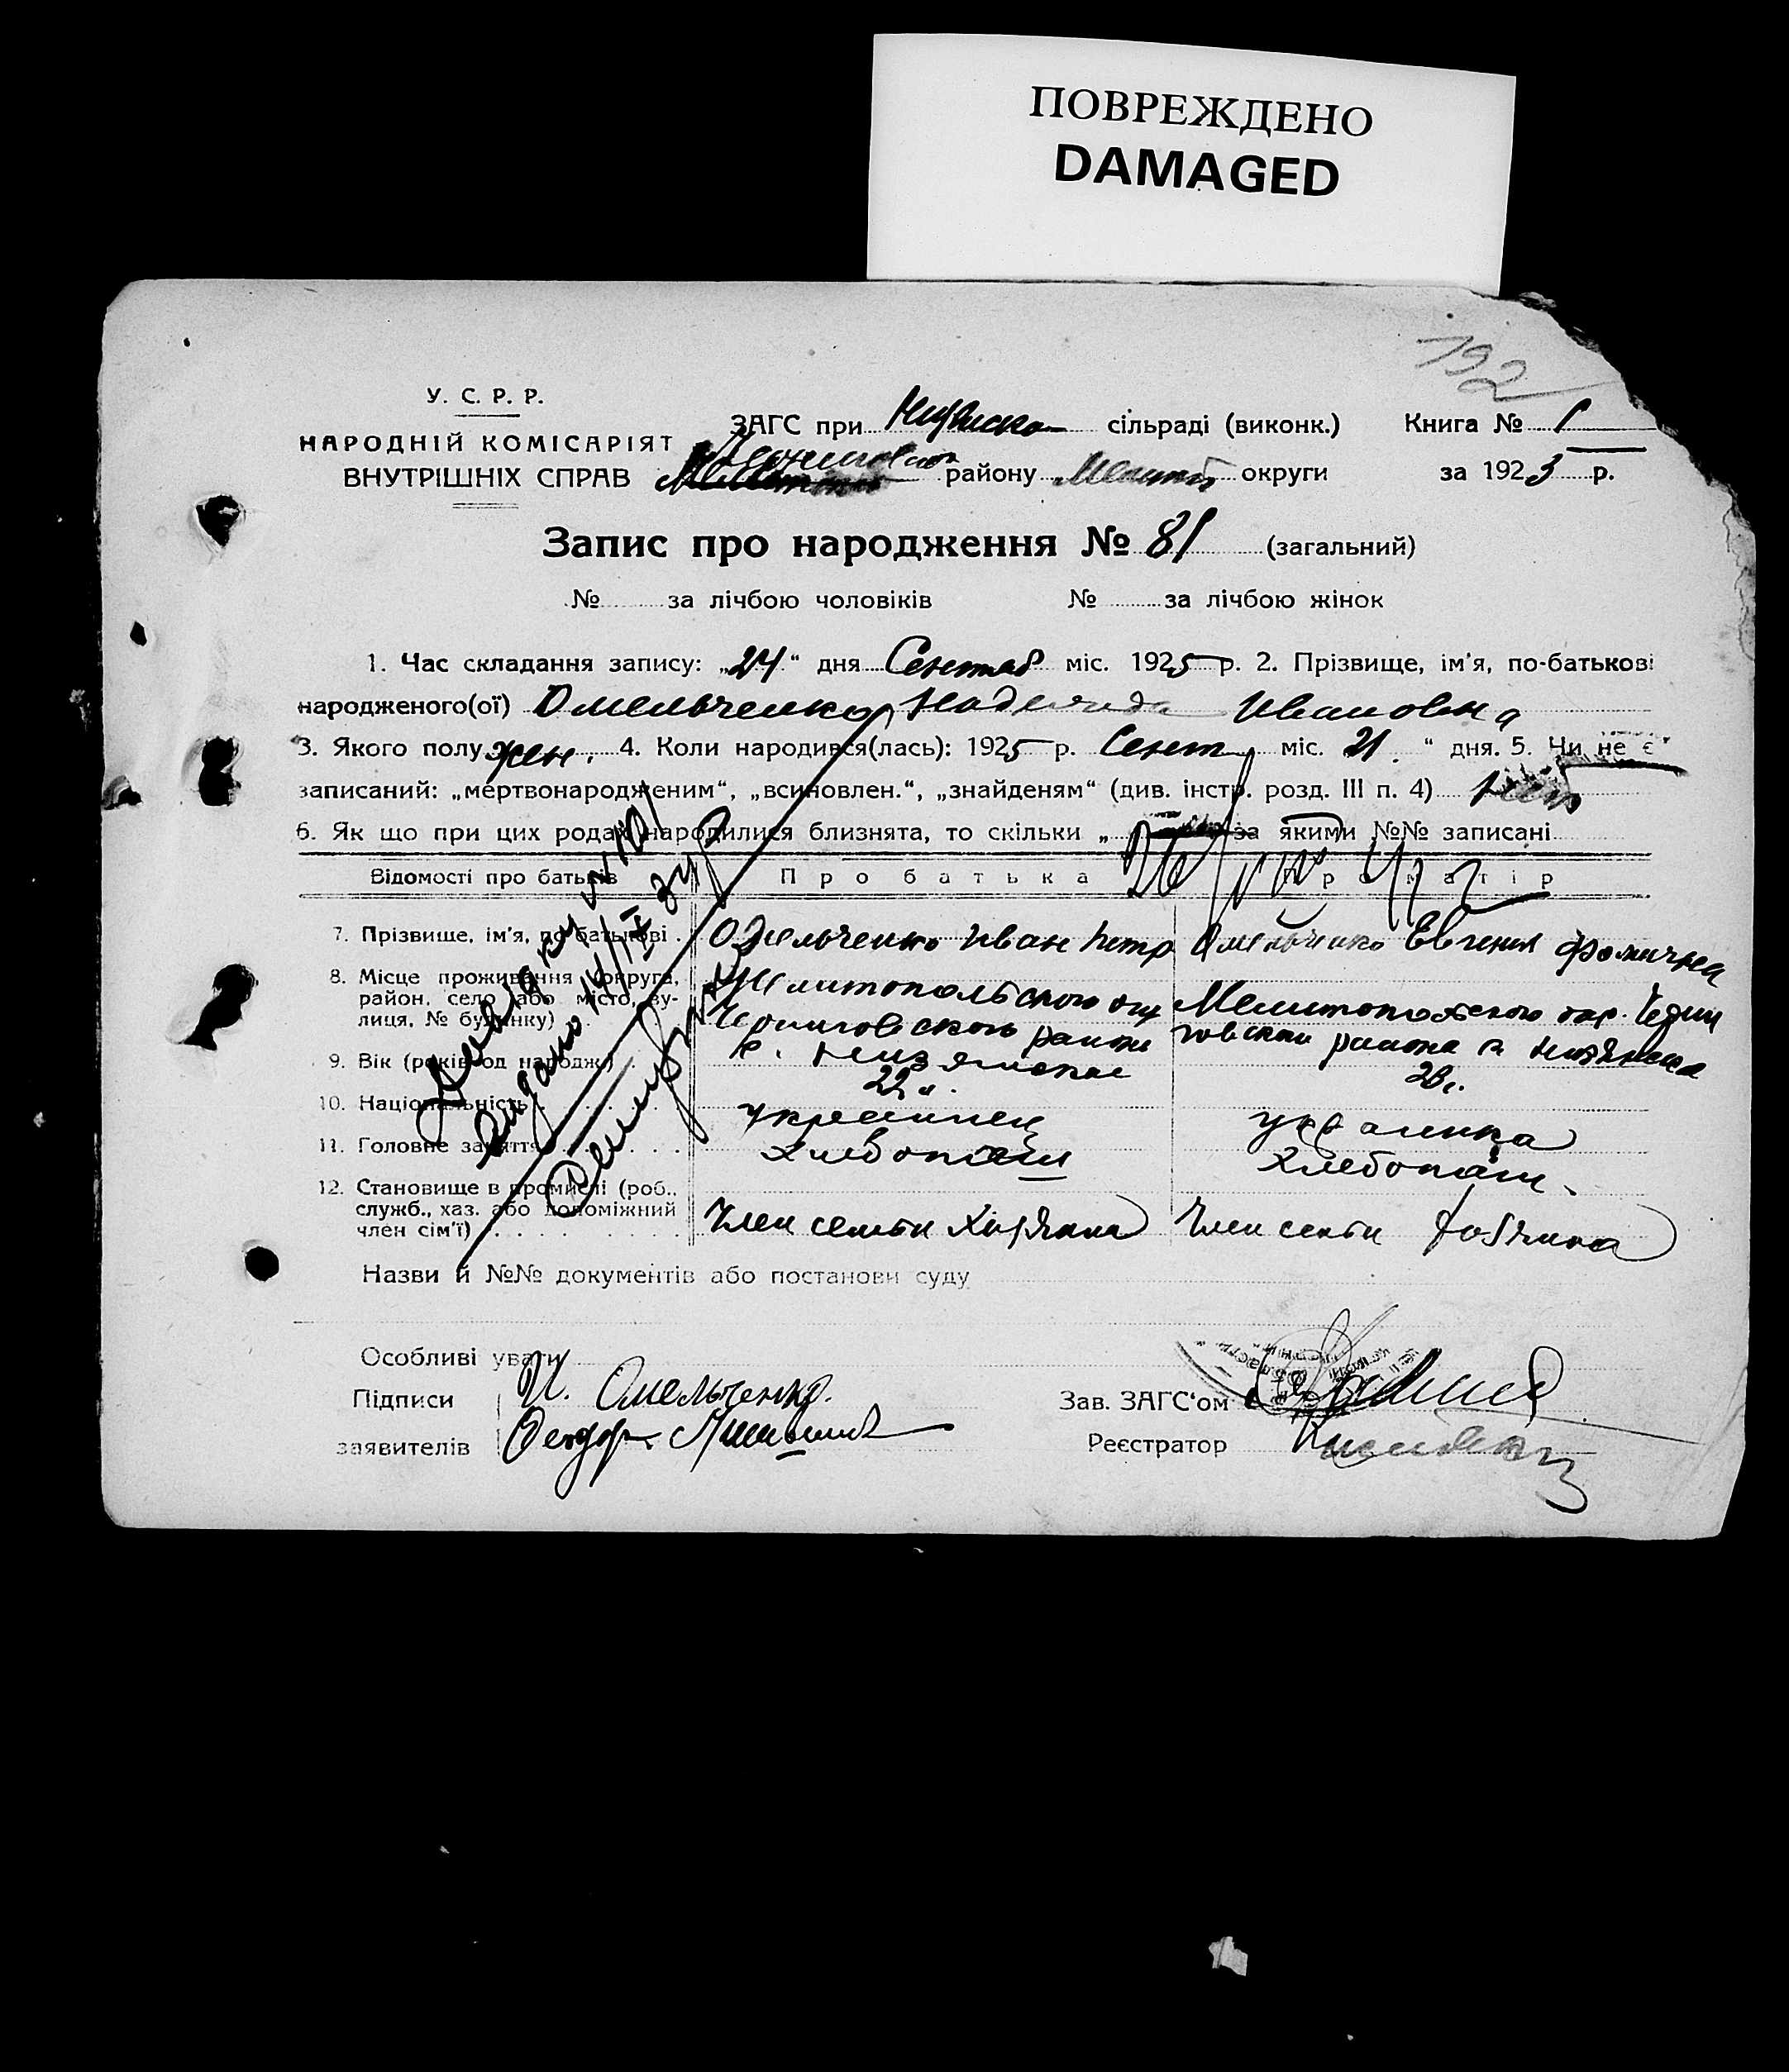 ПОВРЕЖДЕНО
DAMAGED
192
У. С. Р. Р.
НАРОДНІЙ КОМІСАРІЯТ
ВНУТРІШНІХ СПРАВ
ЗАГС при сільраді (виконк.) Книга № 1
району округи за 1923 р.
Запис про народження № 81 (загальний)
№ за лічбою чоловіків № за лічбою жінок
1. Час складання запису: „24“ дня Сентяб міс. 1925 р. 2. Прізвище, ім'я, по-батькові
народженого(ої) Омельченко Надежда Ивановна
3. Якого полу жен. 4. Коли народився(лась): 1925 р. Сент міс. 21 “ дня. 5. Чи не є
записаний: „мертвонародженим“, „всиновлен.“, „знайденям“ (див. інстр. розд. III п. 4) нет
6. Як що при цих родах народилися близнята, то скільки „ за якими №№ записані
Відомості про батьків Про батька Про матір
7. Прізвище, ім'я, по батькові Омельченко Иван Петр Омельченко Евгения Фомична
8. Місце проживання (округа, район, село або місто, вулиця, № будинку) Мелитопольского окр Черниговского района с. Низяноки Мелитопольского окр. Черниговского района
9. Вік (років од народж.) 22
10. Національність украинец украинка
11. Головне заняття хлебопаш хлебопаш.
12. Становище в промислі (роб., служб., хаз. або допоміжний член сім'ї) Член семьи Хозяина Член семьи Хозяина
Назви й №№ документів або постанови суду
Особливі уваги
Підписи И. Омельченко. Зав. ЗАГС'ом
заявителів Реєстратор